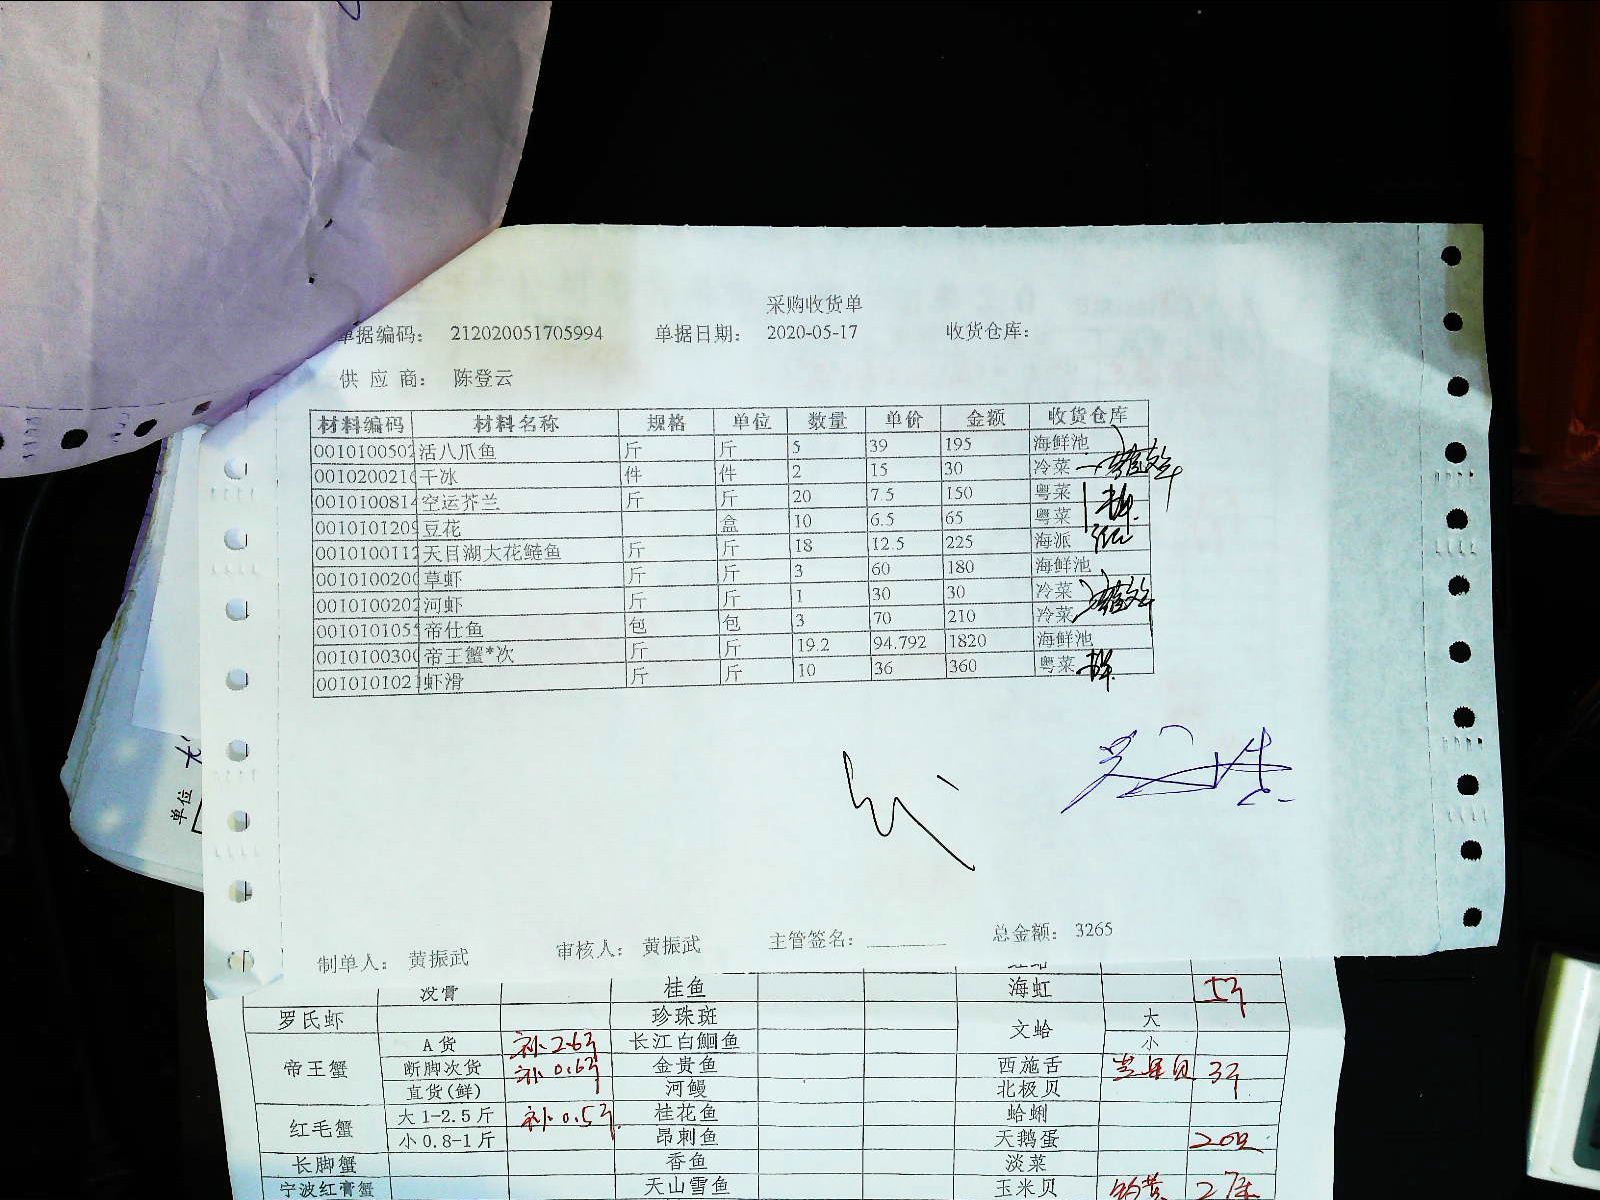 采购收货单
单据编码: 212020051705994 单据日期: 2020-05-17 收货仓库:
供 应 商: 陈登云
材料编码 材料名称 规格 单位 数量 单价 金额 收货仓库
001010050 活八爪鱼 斤 斤 5 39 195 海鲜池
001020021 干冰 件 件 2 15 30 冷菜
0010100814 空运芥兰 斤 斤 20 7.5 150 粤菜
0010101209 豆花 盒 10 6.5 65 粤菜
0010100112 天目湖大花鲢鱼 斤 斤 18 12.5 225 海派
001010020 草虾 斤 斤 3 60 180 海鲜池
0010100202 河虾 斤 斤 1 30 30 冷菜
001010105 帝仕鱼 包 包 3 70 210 冷菜
001010030 帝王蟹*次 斤 斤 19.2 94.792 1820 海鲜池
001010102 虾滑 斤 斤 10 36 360 粤菜
单位
制单人: 黄振武 审核人: 黄振武 主管签名: 总金额: 3265
没膏 桂鱼 海虹 5斤
罗氏虾 珍珠斑 文蛤 大
帝王蟹 A货 补2.6斤 长江白鮰鱼 小
断脚次货 补0.6斤 金贵鱼 西施舌 3斤
直货(鲜) 河鳗 北极贝
红毛蟹 大1-2.5斤 补0.5斤 桂花鱼 蛤蜊
小0.8-1斤 昂刺鱼 天鹅蛋
长脚蟹 香鱼 淡菜
宁波红膏蟹 天山雪鱼 玉米贝